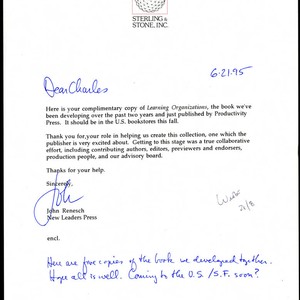 STERLING &
STONE, INC.
6·21·95
Dear Charles
Here is your complimentary copy of Learning Organizations, the book we've
been developing over the past two years and just published by Productivity
Press. It should be in the U.S. bookstores this fall.
Thank you for your role in helping us create this collection, one which the
publisher is very excited about. Getting to this stage was a true collaborative
effort, including contributing authors, editors, previewers and endorsers,
production people, and our advisory board.
Thanks for your help.
Sincerely,
John
John Renesch
New Leaders Press
encl.
Here are five copies of the book we developed together.
Hope all is well. Coming to the U.S. / S.F. soon?